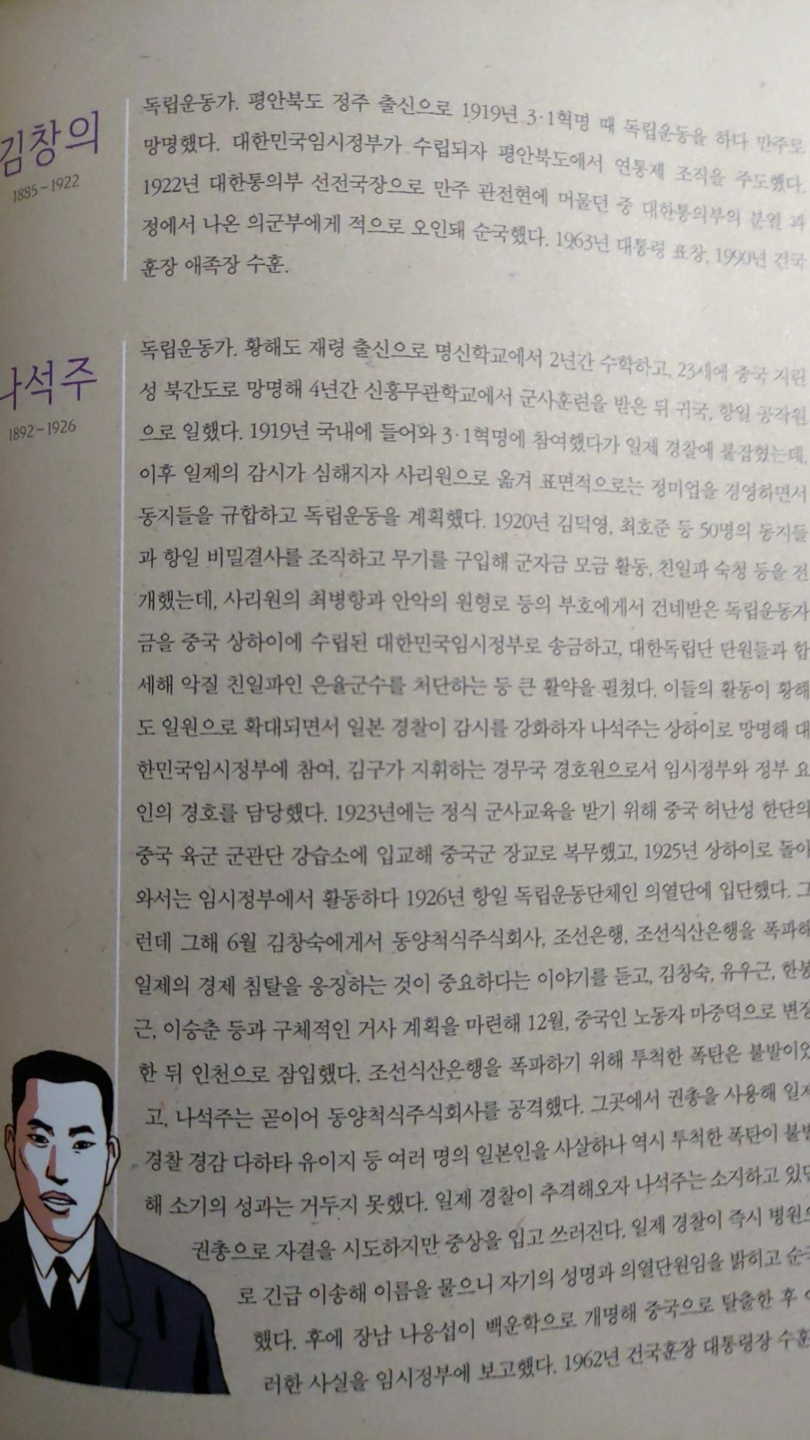 김창의
1885~1922
독립운동가. 평안북도 정주 출신으로 1919년 3·1혁명 때 독립운동을 하다 만주로
망명했다. 대한민국임시정부가 수립되자 평안북도에서 연통제 조직을 주도했다.
1922년 대한통의부 선전국장으로 만주 관전현에 머물던 중 대한통의부의 분열 과
정에서 나온 의군부에게 적으로 오인돼 순국했다. 1963년 대통령 표창, 1990년 건국
훈장 애족장 수훈.
나석주
1892~1926
독립운동가. 황해도 재령 출신으로 명신학교에서 2년간 수학하고, 23세에 중국 지린
성 북간도로 망명해 4년간 신흥무관학교에서 군사훈련을 받은 뒤 귀국, 항일 공작원
으로 일했다. 1919년 국내에 들어와 3·1혁명에 참여했다가 일제 경찰에 붙잡혔는데,
이후 일제의 감시가 심해지자 사리원으로 옮겨 표면적으로는 정미업을 경영하면서
동지들을 규합하고 독립운동을 계획했다. 1920년 김덕영, 최호준 등 50명의 동지들
과 항일 비밀결사를 조직하고 무기를 구입해 군자금 모금 활동, 친일파 숙청 등을 전
개했는데, 사리원의 최병항과 안악의 원형로 등의 부호에게서 건네받은 독립운동가
금을 중국 상하이에 수립된 대한민국임시정부로 송금하고, 대한독립단 단원들과 합
세해 악질 친일파인 은율군수를 처단하는 등 큰 활약을 펼쳤다. 이들의 활동이 황해
도 일원으로 확대되면서 일본 경찰이 감시를 강화하자 나석주는 상하이로 망명해 대
한민국임시정부에 참여, 김구가 지휘하는 경무국 경호원으로서 임시정부와 정부 요
인의 경호를 담당했다. 1923년에는 정식 군사교육을 받기 위해 중국 허난성 한단의
중국 육군 군관단 강습소에 입교해 중국군 장교로 복무했고, 1925년 상하이로 돌아
와서는 임시정부에서 활동하다 1926년 항일 독립운동단체인 의열단에 입단했다. 그
런데 그해 6월 김창숙에게서 동양척식주식회사, 조선은행, 조선식산은행을 폭파해
일제의 경제 침탈을 응징하는 것이 중요하다는 이야기를 듣고, 김창숙, 유우근, 한봉
근, 이승춘 등과 구체적인 거사 계획을 마련해 12월, 중국인 노동자 마중덕으로 변장
한 뒤 인천으로 잠입했다. 조선식산은행을 폭파하기 위해 투척한 폭탄은 불발이었
고, 나석주는 곧이어 동양척식주식회사를 공격했다. 그곳에서 권총을 사용해 일제
경찰 경감 다하타 유이지 등 여러 명의 일본인을 사살하나 역시 투척한 폭탄이 불발
해 소기의 성과는 거두지 못했다. 일제 경찰이 추격해오자 나석주는 소지하고 있던
권총으로 자결을 시도하지만 중상을 입고 쓰러진다. 일제 경찰이 즉시 병원으
로 긴급 이송해 이름을 물으니 자기의 성명과 의열단원임을 밝히고 순국
했다. 후에 장남 나응섭이 백운학으로 개명해 중국으로 탈출한 후
러한 사실을 임시정부에 보고했다. 1962년 건국훈장 대통령장 수훈